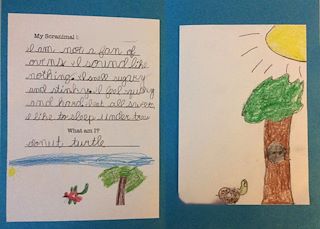 My Scranimal :
I am not a fan of
owns. I sound like
nothing. I smell sugary
and stinky. I feel squishy
and hard, but all sweet.
I like to sleep under trees
What am I?
donut turtle